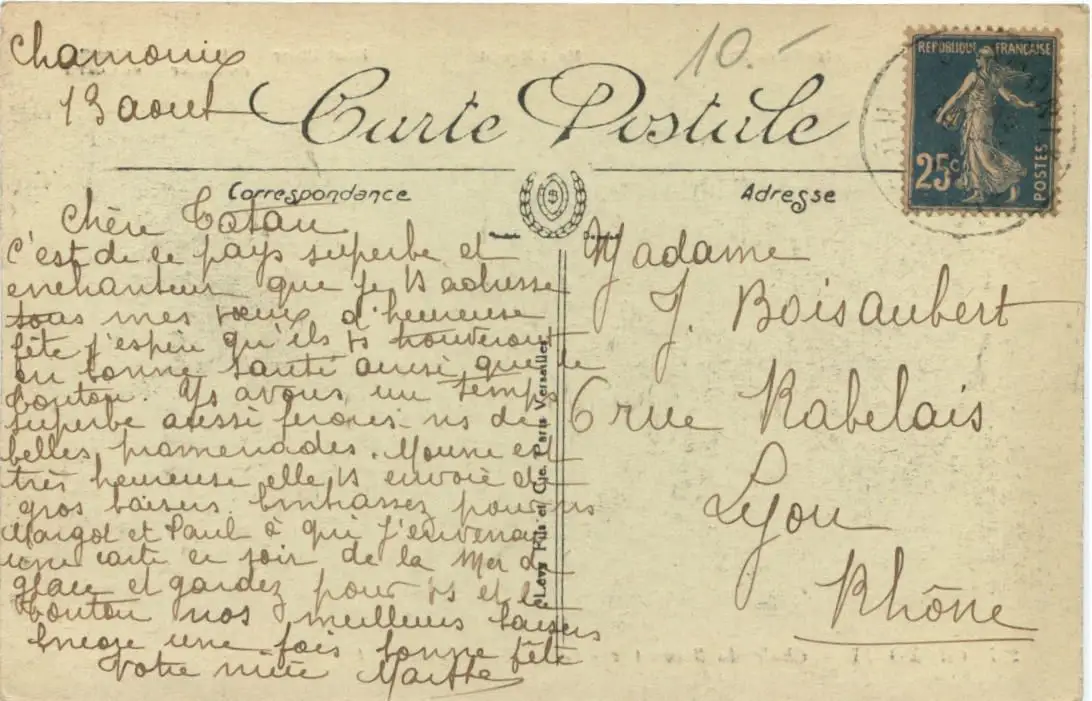 Chamonix
13 aout
10.-
Carte Postale
REPUBLIQUE FRANÇAISE
25c
POSTES
Correspondance
Adresse
Chère Tatan
C'est de ce pays superbe et
enchanteur que je vs adresse
tous mes vœux d'heureuse
fête j'espère qu'ils vs trouveront
en bonne santé aussi que le
Tonton. Ns avons un temps
superbe aussi ferons-ns de
belles promenades. Moune est
très heureuse elle vs envoie de
gros baisers. Embrassez pour ns
Margot et Paul à qui j'enverrai
une carte ce soir de la Mer de
glace et gardez pour vs et le
Tonton nos meilleurs baisers
Encore une fois bonne fête
Votre nièce Marthe
Levy Fils et Cie. Paris Versailles
Madame
J. Boisaubert
6 rue Rabelais
Lyon
Rhône